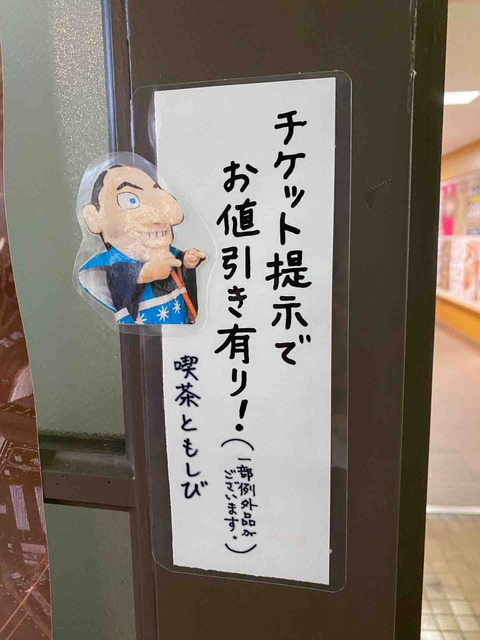 チケット提示で
お値引き有り!
(一部例外品が
ございます.)
喫茶ともしび